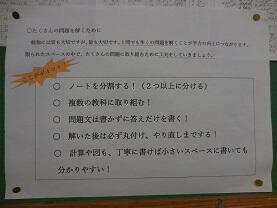 ○たくさんの問題を解くために
勉強には質も大切ですが、量も大切です。1問でも多くの問題を解くことが学力の向上につながります。
限られたスペースの中で、たくさんの問題に取り組むために工夫をしていきましょう。
ここがポイント！
○ ノートを分割する！（２つ以上に分ける）
○ 複数の教科に取り組む！
○ 問題文は書かずに答えだけを書く！
○ 解いた後は必ず丸付け、やり直しまでする！
○ 計算や図も、丁寧に書けば小さいスペースに書いても
分かりやすい！